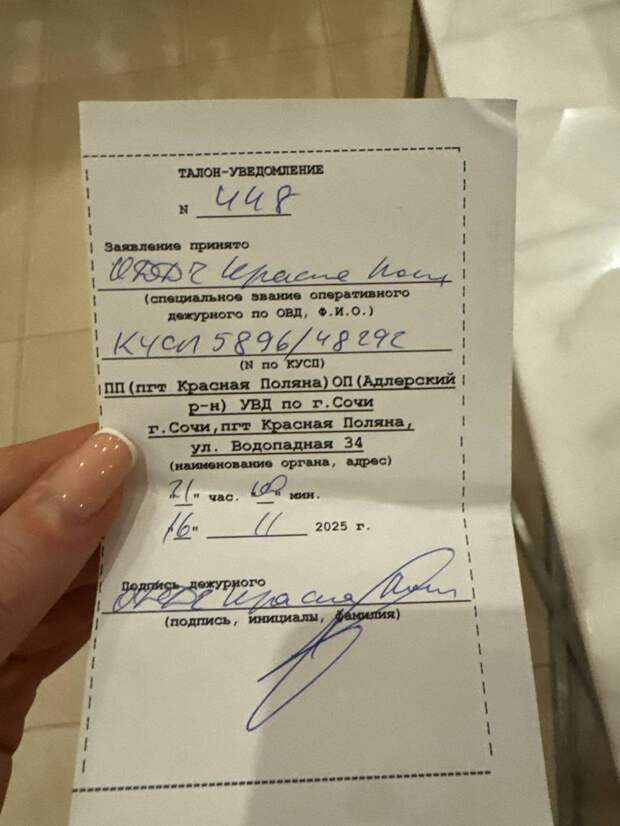 ТАЛОН-УВЕДОМЛЕНИЕ
N 448
Заявление принято
Красная
(специальное звание оперативного
дежурного по ОВД, Ф.И.О.)
КУСП 5896/48292
(N по КУСП)
ПП(пгт Красная Поляна)ОП(Адлерский
р-н) УВД по г.Сочи
г.Сочи,пгт Красная Поляна,
ул. Водопадная 34
(наименование органа, адрес)
"21" час. "00" мин.
"16" 11 2025 г.
Подпись дежурного
Красная
(подпись, инициалы, фамилия)